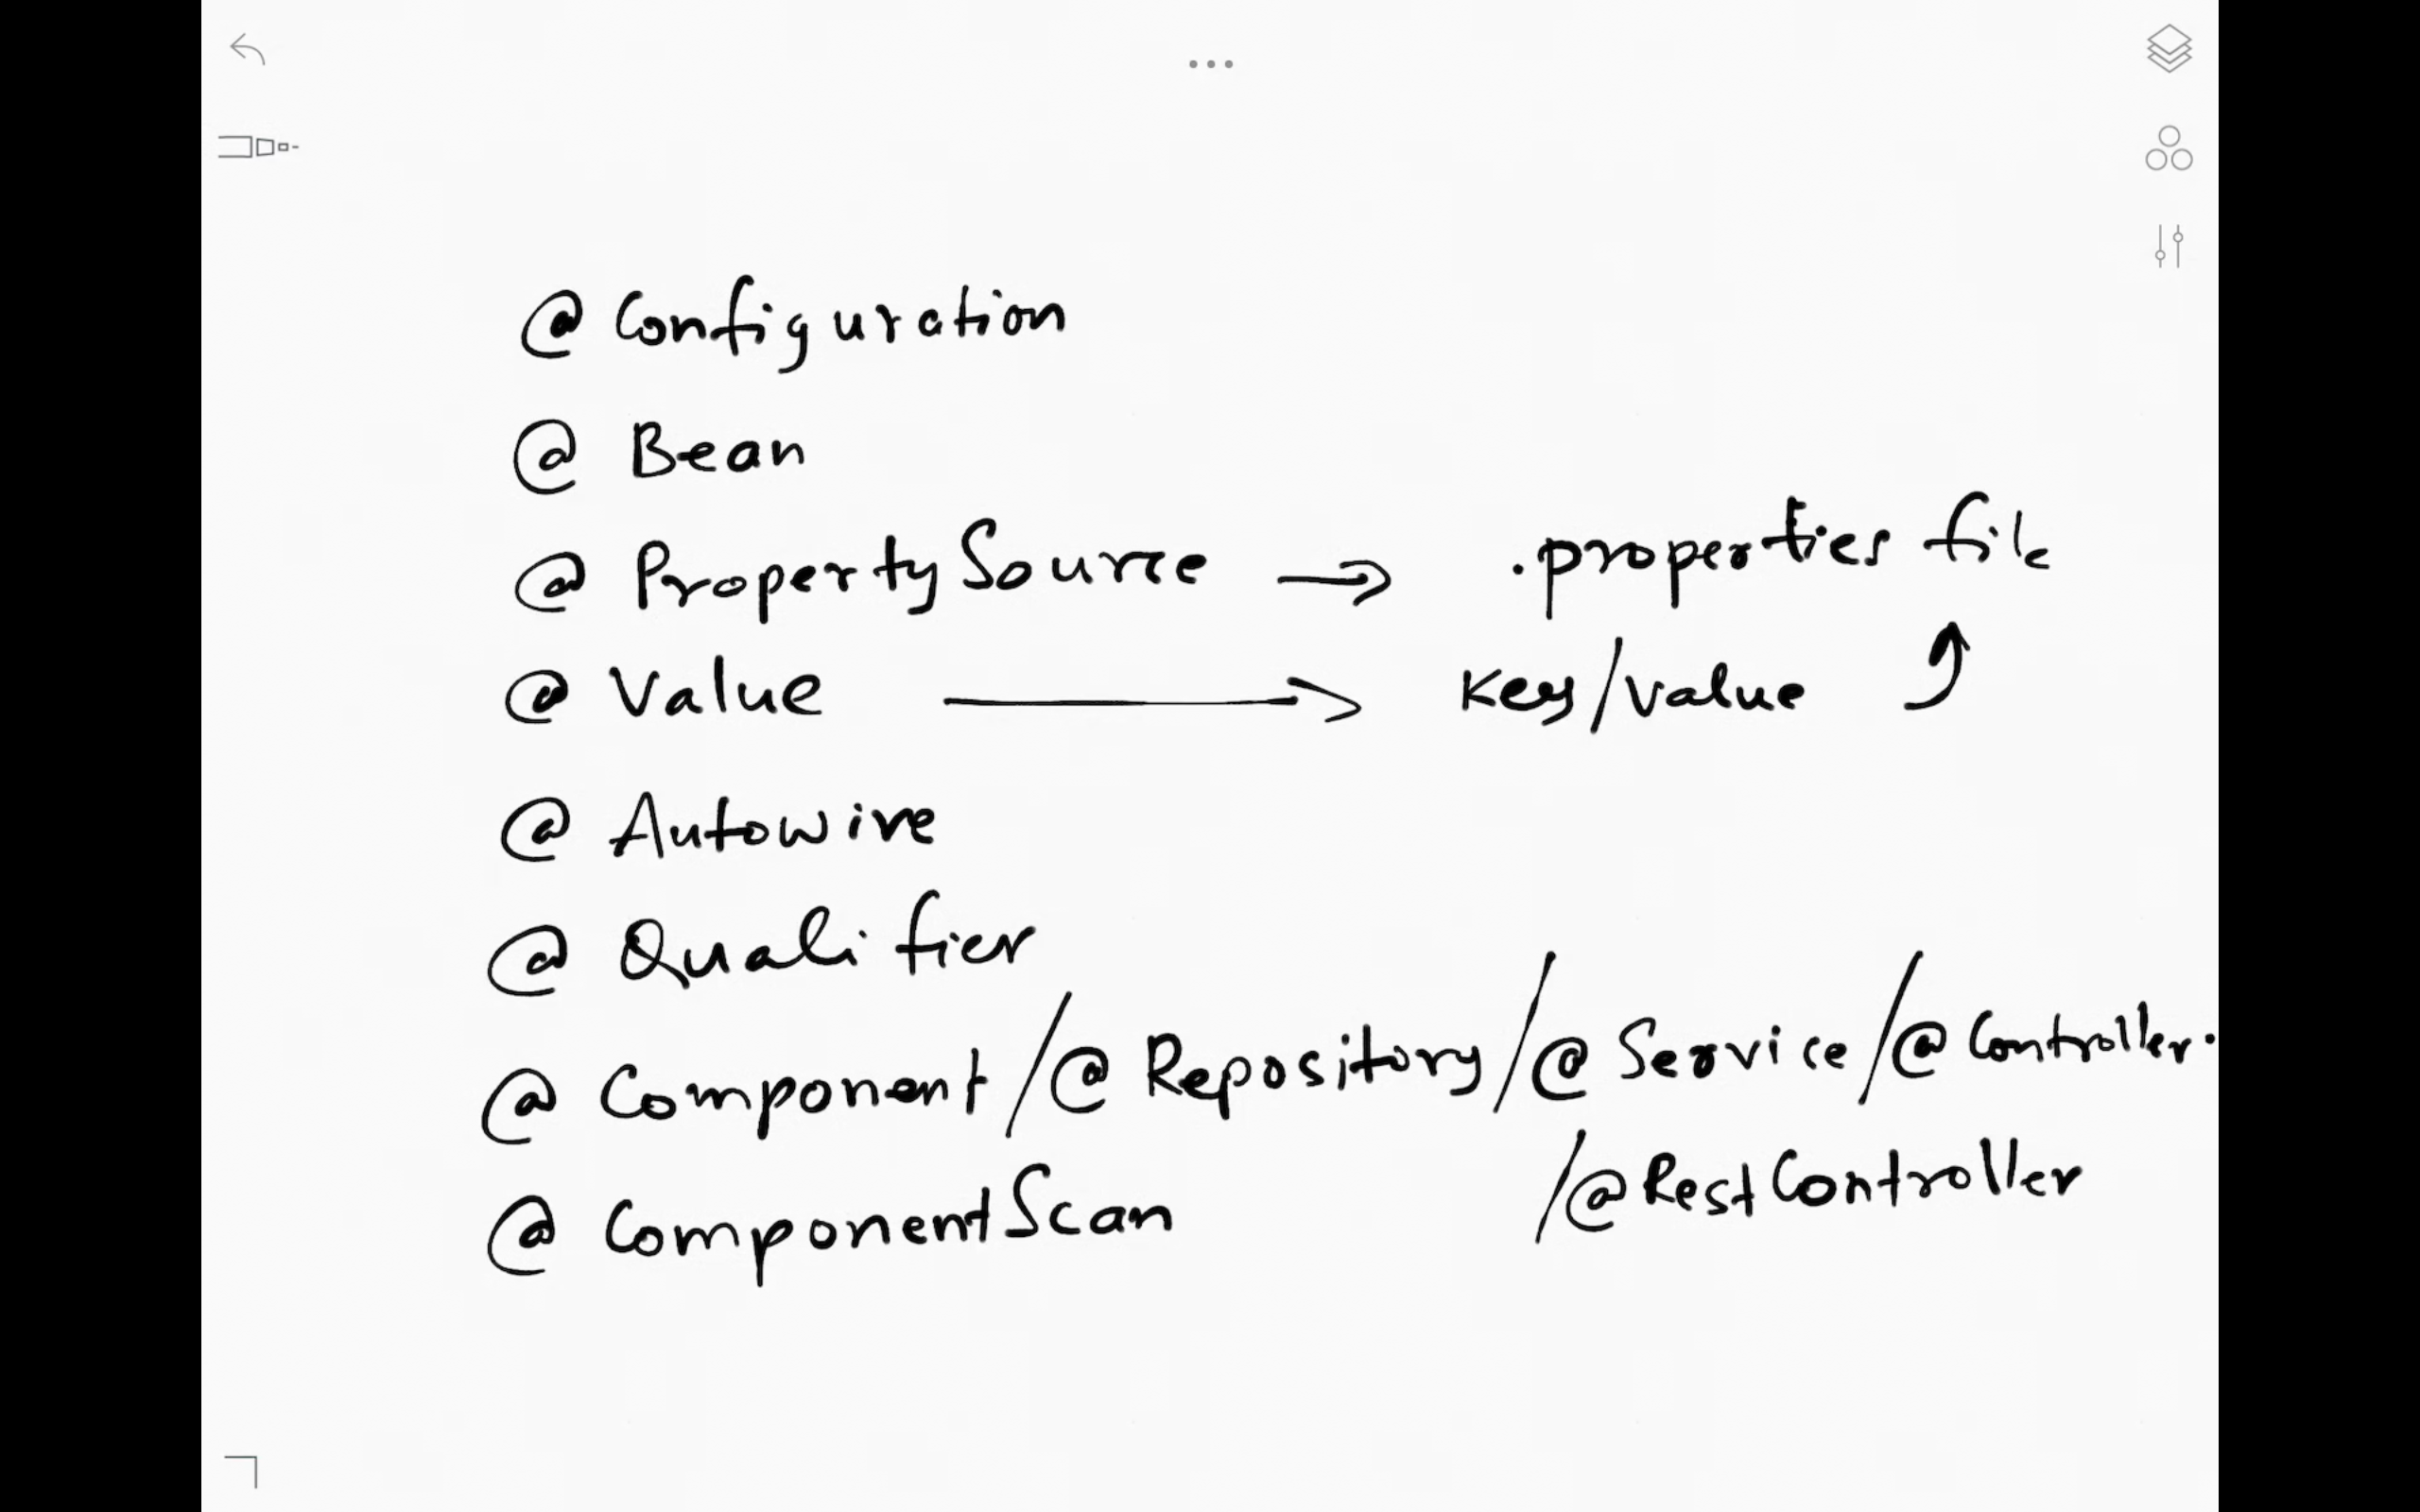 @ Configuration
@ Bean
@ PropertySource → .properties file
@ Value → Key/Value
@ Autowire
@ Qualifier
@ Component/@ Repository/@ Service/@ Controller.
/@ RestController
@ ComponentScan